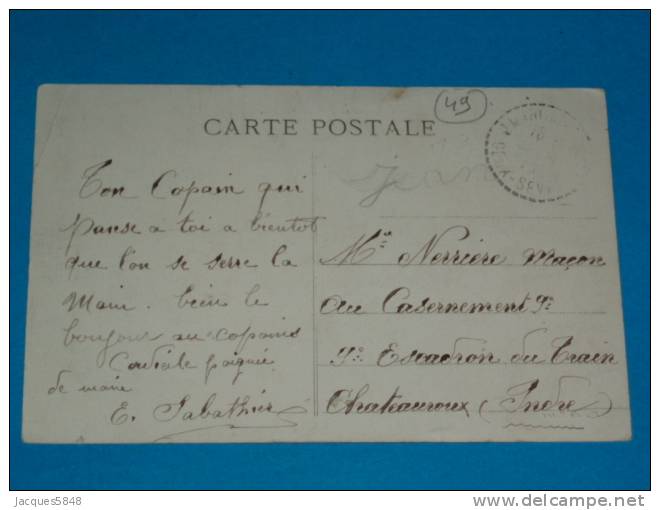 49
CARTE POSTALE
Jean
Ton Copain qui
panse a toi a bientot
que l'on se serre la
Main. bien le
bonjour au copains
Cordiale poignée
de main
E. Sabathier
Mr Nerrière Maçon
au Casernement 9e
9e Escadron du Train
Chateauroux (Indre)
Jacques5848
delcampe.net